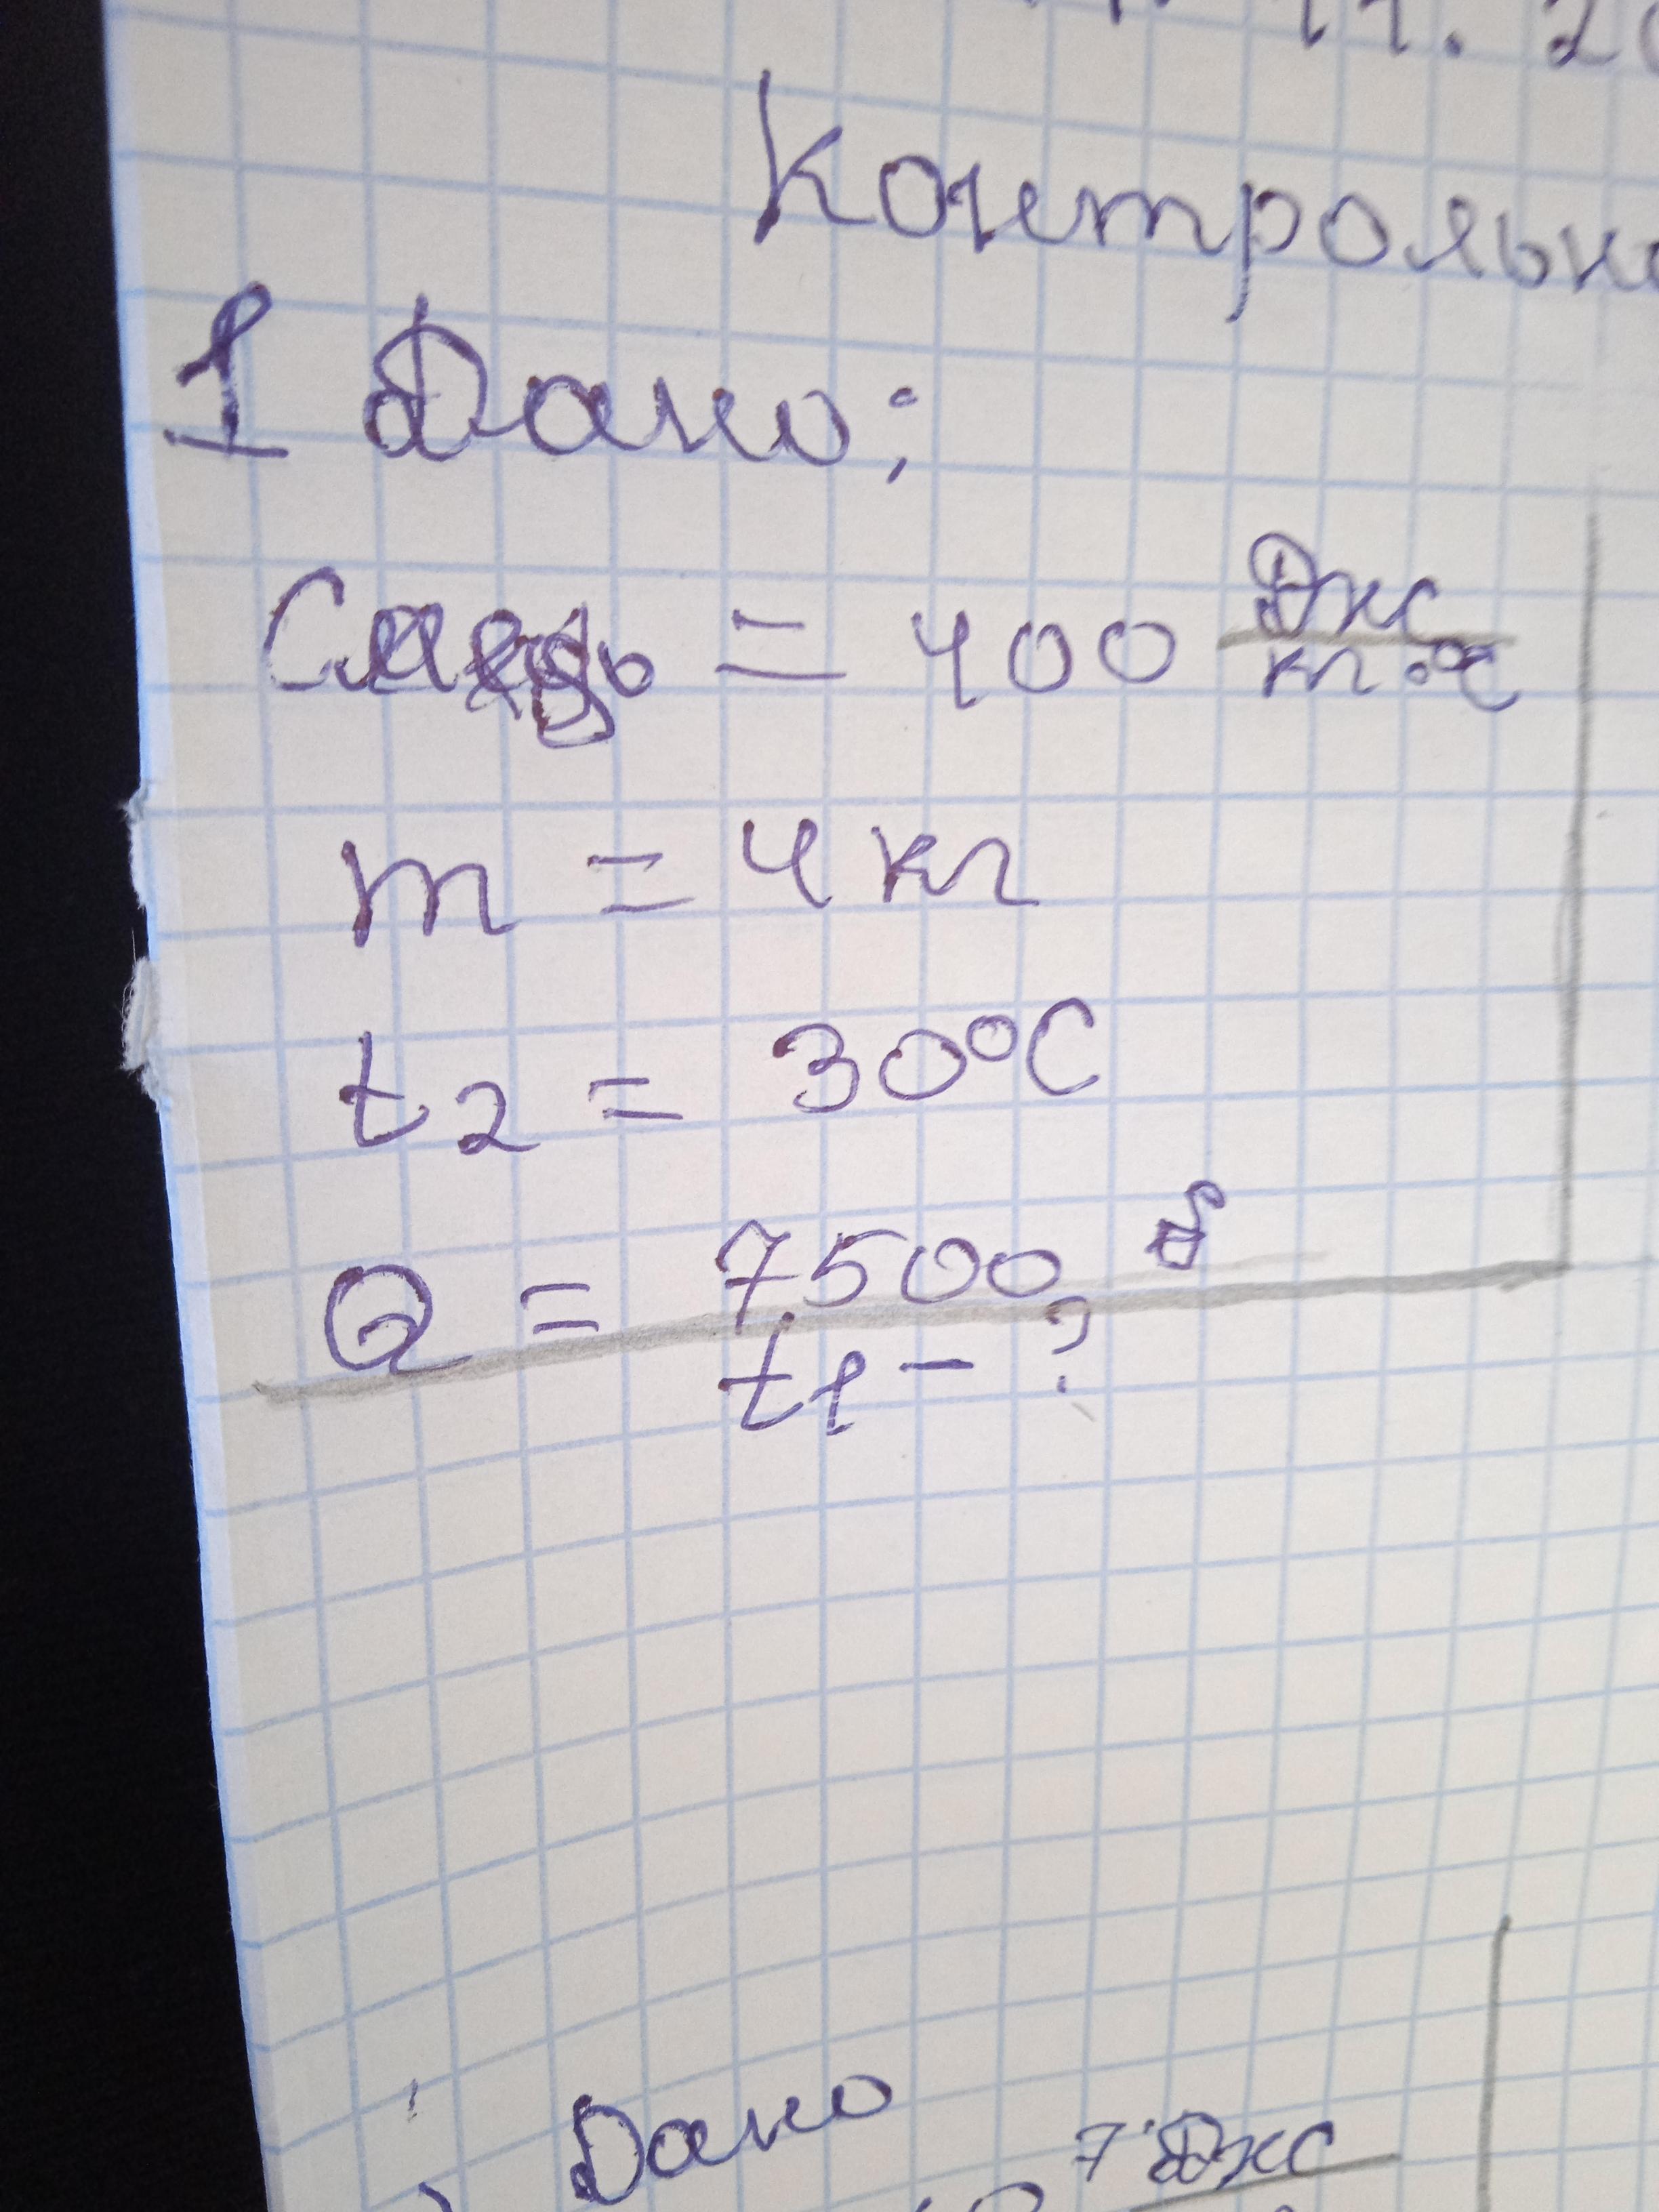 11. 20
Контрольно
1 Дано:
Cмедь = 400 Дж/кг·°C
m = 4 кг
t2 = 30°C
Q = 7500
t1 - ?
Дано
7 Дж